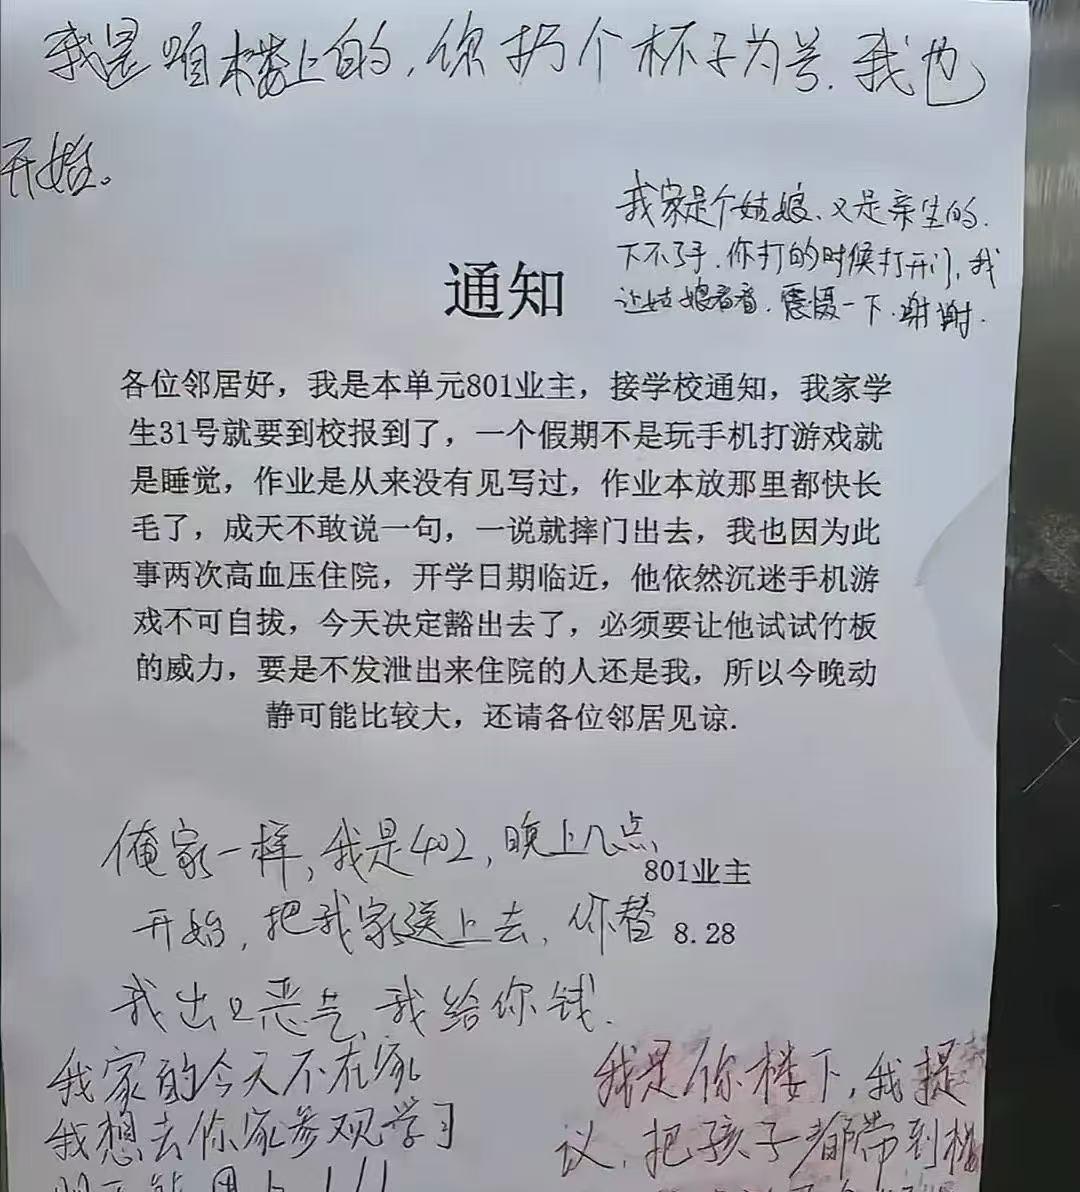 我是咱楼上的，你扔个杯子为号.我也
开始。
我家是个姑娘、又是亲生的.
下不了手.你打的时候打开门，我
让姑娘看看.震慑一下.谢谢.
通知
各位邻居好，我是本单元801业主，接学校通知，我家学
生31号就要到校报到了，一个假期不是玩手机打游戏就
是睡觉，作业是从来没有见写过，作业本放那里都快长
毛了，成天不敢说一句，一说就摔门出去，我也因为此
事两次高血压住院，开学日期临近，他依然沉迷手机游
戏不可自拔，今天决定豁出去了，必须要让他试试竹板
的威力，要是不发泄出来住院的人还是我，所以今晚动
静可能比较大，还请各位邻居见谅.
801业主
8.28
俺家一样，我是402，晚上几点
开始，把我家送上去，你替
我出口恶气，我给你钱.
我家的今天不在家
我想去你家参观学习
我是你楼下，我提
议，把孩子都带到楼